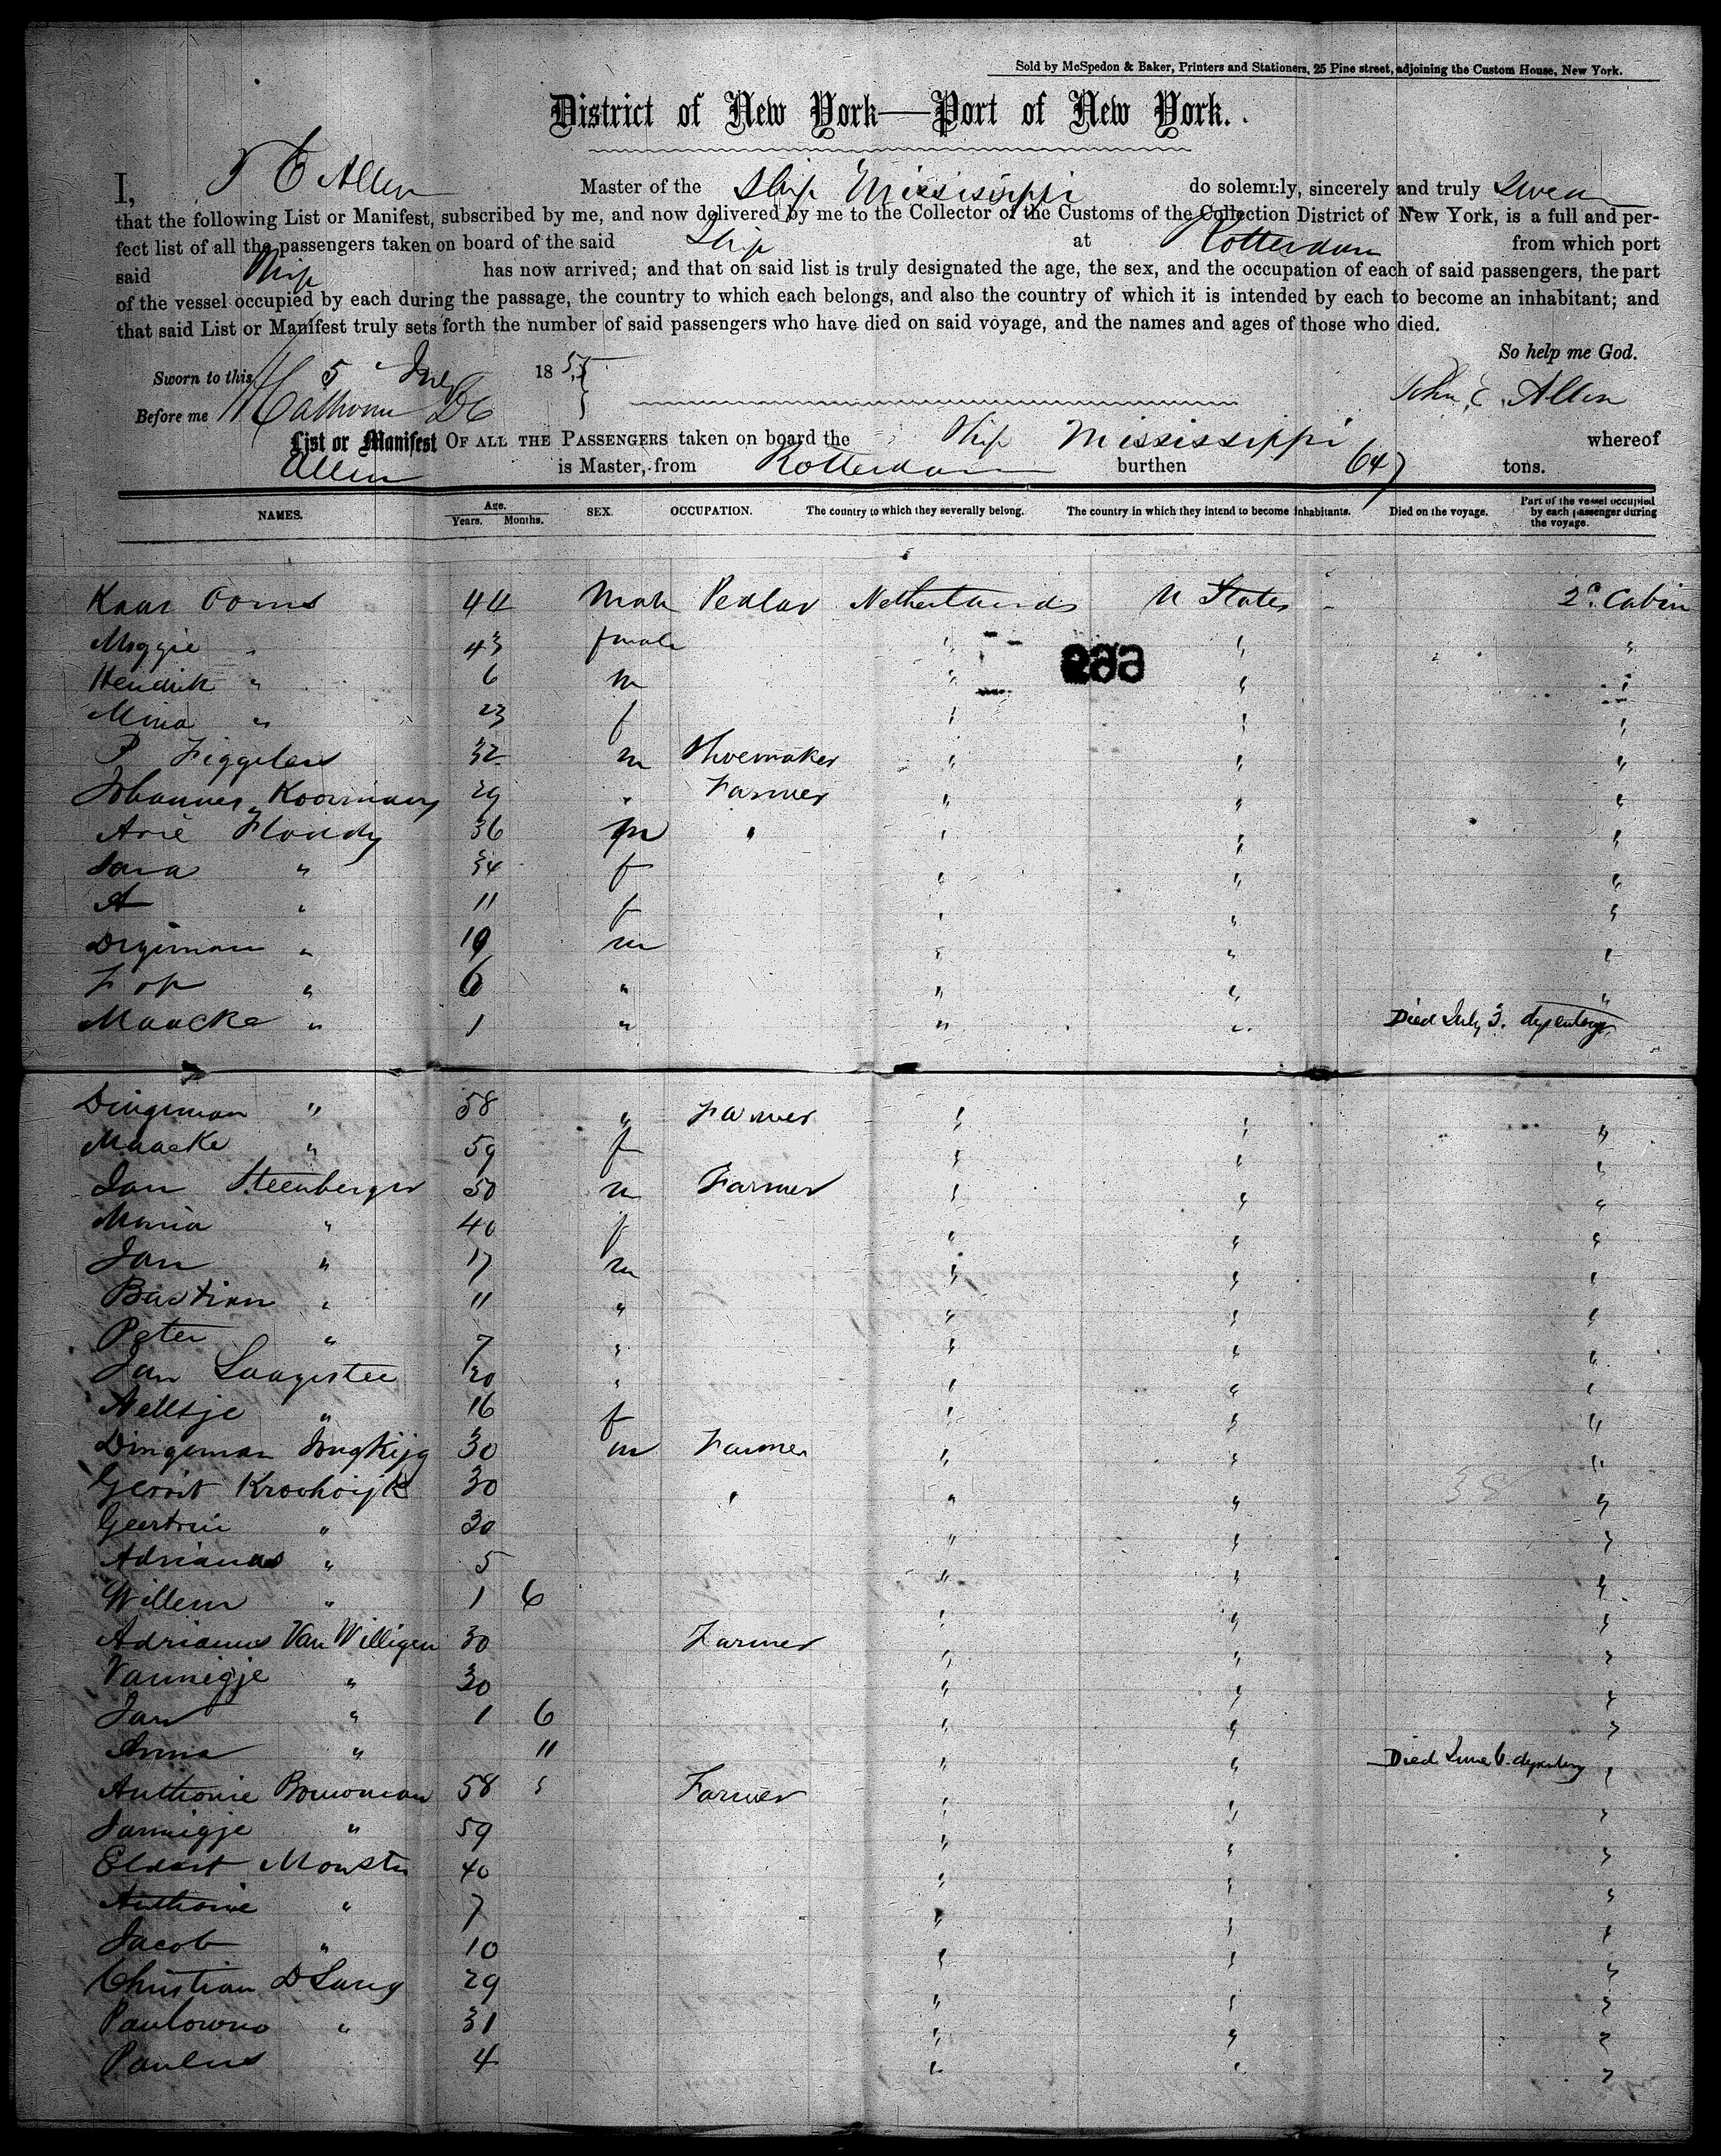 Sold by McSpedon & Baker, Printers and Stationers, 25 Pine street, adjoining the Custom House, New York.
District of New York—Port of New York.
I, J E Allen Master of the Ship Mississippi do solemnly, sincerely and truly Swear
that the following List or Manifest, subscribed by me, and now delivered by me to the Collector of the Customs of the Collection District of New York, is a full and per-
fect list of all the passengers taken on board of the said Ship at Rotterdam from which port
said Ship has now arrived; and that on said list is truly designated the age, the sex, and the occupation of each of said passengers, the part
of the vessel occupied by each during the passage, the country to which each belongs, and also the country of which it is intended by each to become an inhabitant; and
that said List or Manifest truly sets forth the number of said passengers who have died on said voyage, and the names and ages of those who died.
So help me God.
Sworn to this 5 July 1855
Before me Calhoun DC John E. Allen
List or Manifest OF ALL THE PASSENGERS taken on board the Ship Mississippi whereof
Allen is Master, from Rotterdam burthen 647 tons.
NAMES. Age. Years. Months. SEX. OCCUPATION. The country to which they severally belong. The country in which they intend to become inhabitants. Died on the voyage. Part of the vessel occupied by each passenger during the voyage.
Kaar Ooms 44 Male Pedlar Netherlands U States 2d. Cabin
Miggie " 43 female " " "
266
Hendrik " 6 m " " "
Mina " 23 f " " "
P Figgelan 32 m Shoemaker " " "
Johannes Koormans 29 " Farmer " " "
Arie Hondy 36 m " " " "
Sara " 34 f " " "
A " 11 f " " "
Digiman " 19 m " " "
Fop " 6 " " " "
Maacke " 1 " " " Died July 3. dysentery
Dingeman " 58 " Farmer " " "
Maacke " 59 f " " "
Jan Steenberger 50 m Farmer " " "
Maria " 40 f " " "
Jan " 17 m " " "
Bastian " 11 " " " "
Peter " 7 " " " "
Jan Laagestee 20 " " " "
Nelltje " 16 f " " "
Dingeman Jongkijg 30 m Farmer " " "
Gerrit Kroohoijk 30 " " " "
Geertrui " 30 " " "
Adrianas " 5 " " "
Willem " 1 6 " " "
Adrianus Van Willigen 30 Farmer " " "
Vannigje " 30 " " "
Jan " 1 6 " " "
Anna " 11 " " Died June 6. dysentery "
Anthonie Bouwman 58 " Farmer " " "
Jannigje " 59 " " "
Eldert Monster 40 " " "
Anthonie " 7 " " "
Jacob " 10 " " "
Christian D Lang 29 " " "
Paulowna " 31 " " "
Paulus 4 " " "